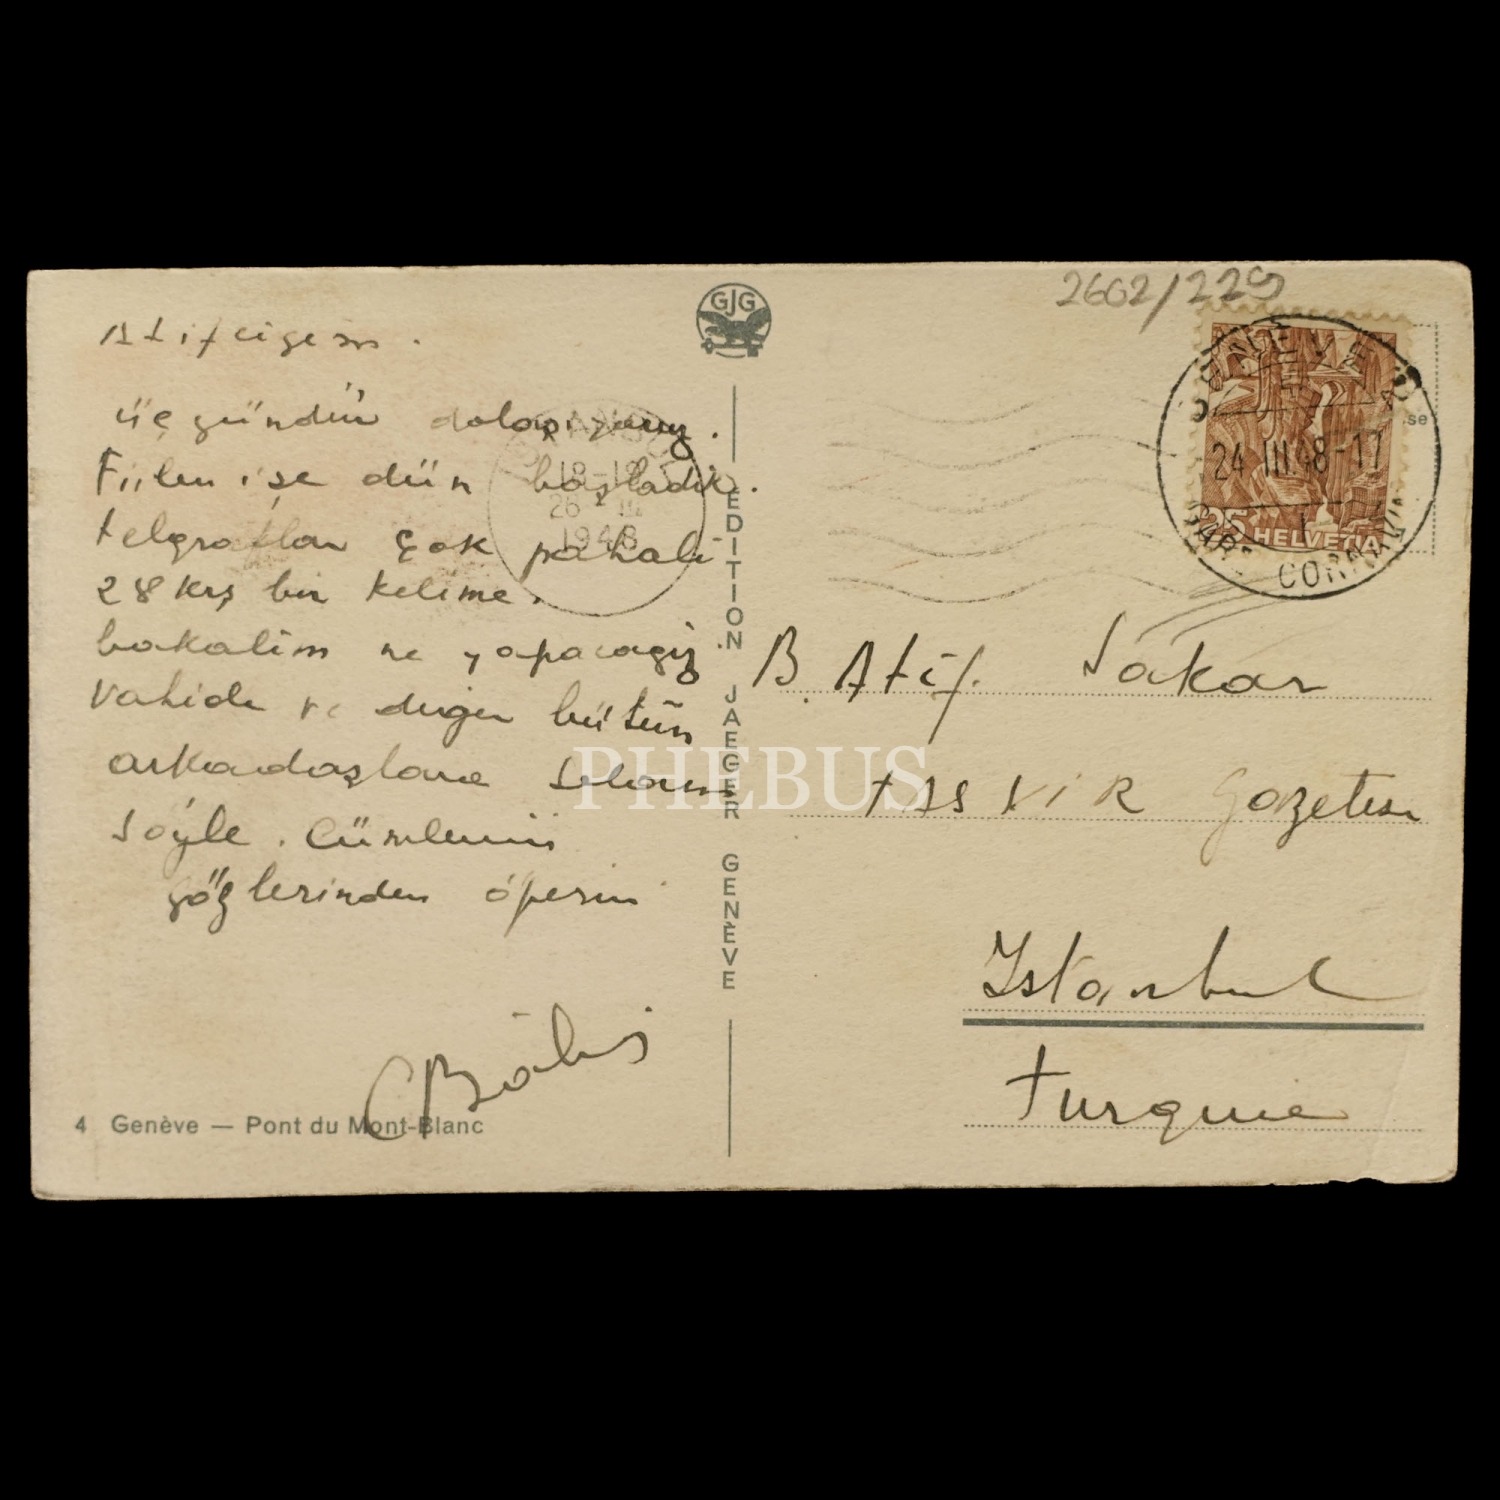 2602/229
GJG
Atifciğim.
üç gündür dolaşıyoruz.
Fiilen ise dün başladık.
telgraflar çok pahalı
28 krş bir kelime.
bakalım ne yapacağız.
Vahide ve diğer bütün
arkadaşlara selam
söyle. Cümlenin
gözlerinden öperim
4 Genève — Pont du Mont-Blanc
EDITION JAEGER GENÈVE
18-19
26 III
1948
GENÈVE
24 III 48-17
25 HELVETIA
CORNAVIN
se
B. Atıf. Sakar
TASVİR Gazetesi
Istanbul
Turquie
PHEBUS